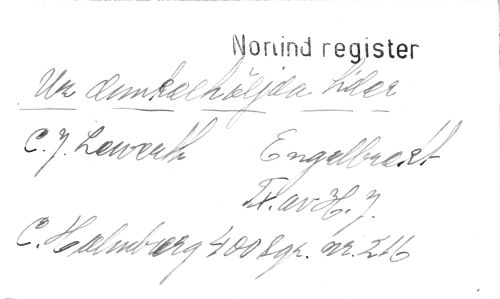 Norlind register
Ur dunkelhöljda tider
C. J. Lewerth Engelbrekt
Tr. av H. J.
C. Holmberg 400 sgr. nr. 216